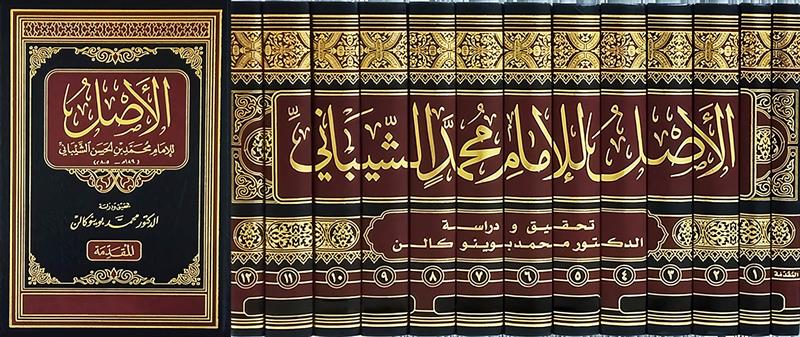 الأصل
للإمام محمد بن الحسن الشيباني
(١٨٩هـ - ٨٠٥م)
تحقيق ودراسة
الدكتور محمد بوينوكالن
المقدمة
الأصل للإمام محمد الشيباني
تحقيق و دراسة
الدكتور محمد بوينو كالن
المقدمة ١ ٢ ٣ ٤ ٥ ٦ ٧ ٨ ٩ ١٠ ١١ ١٢